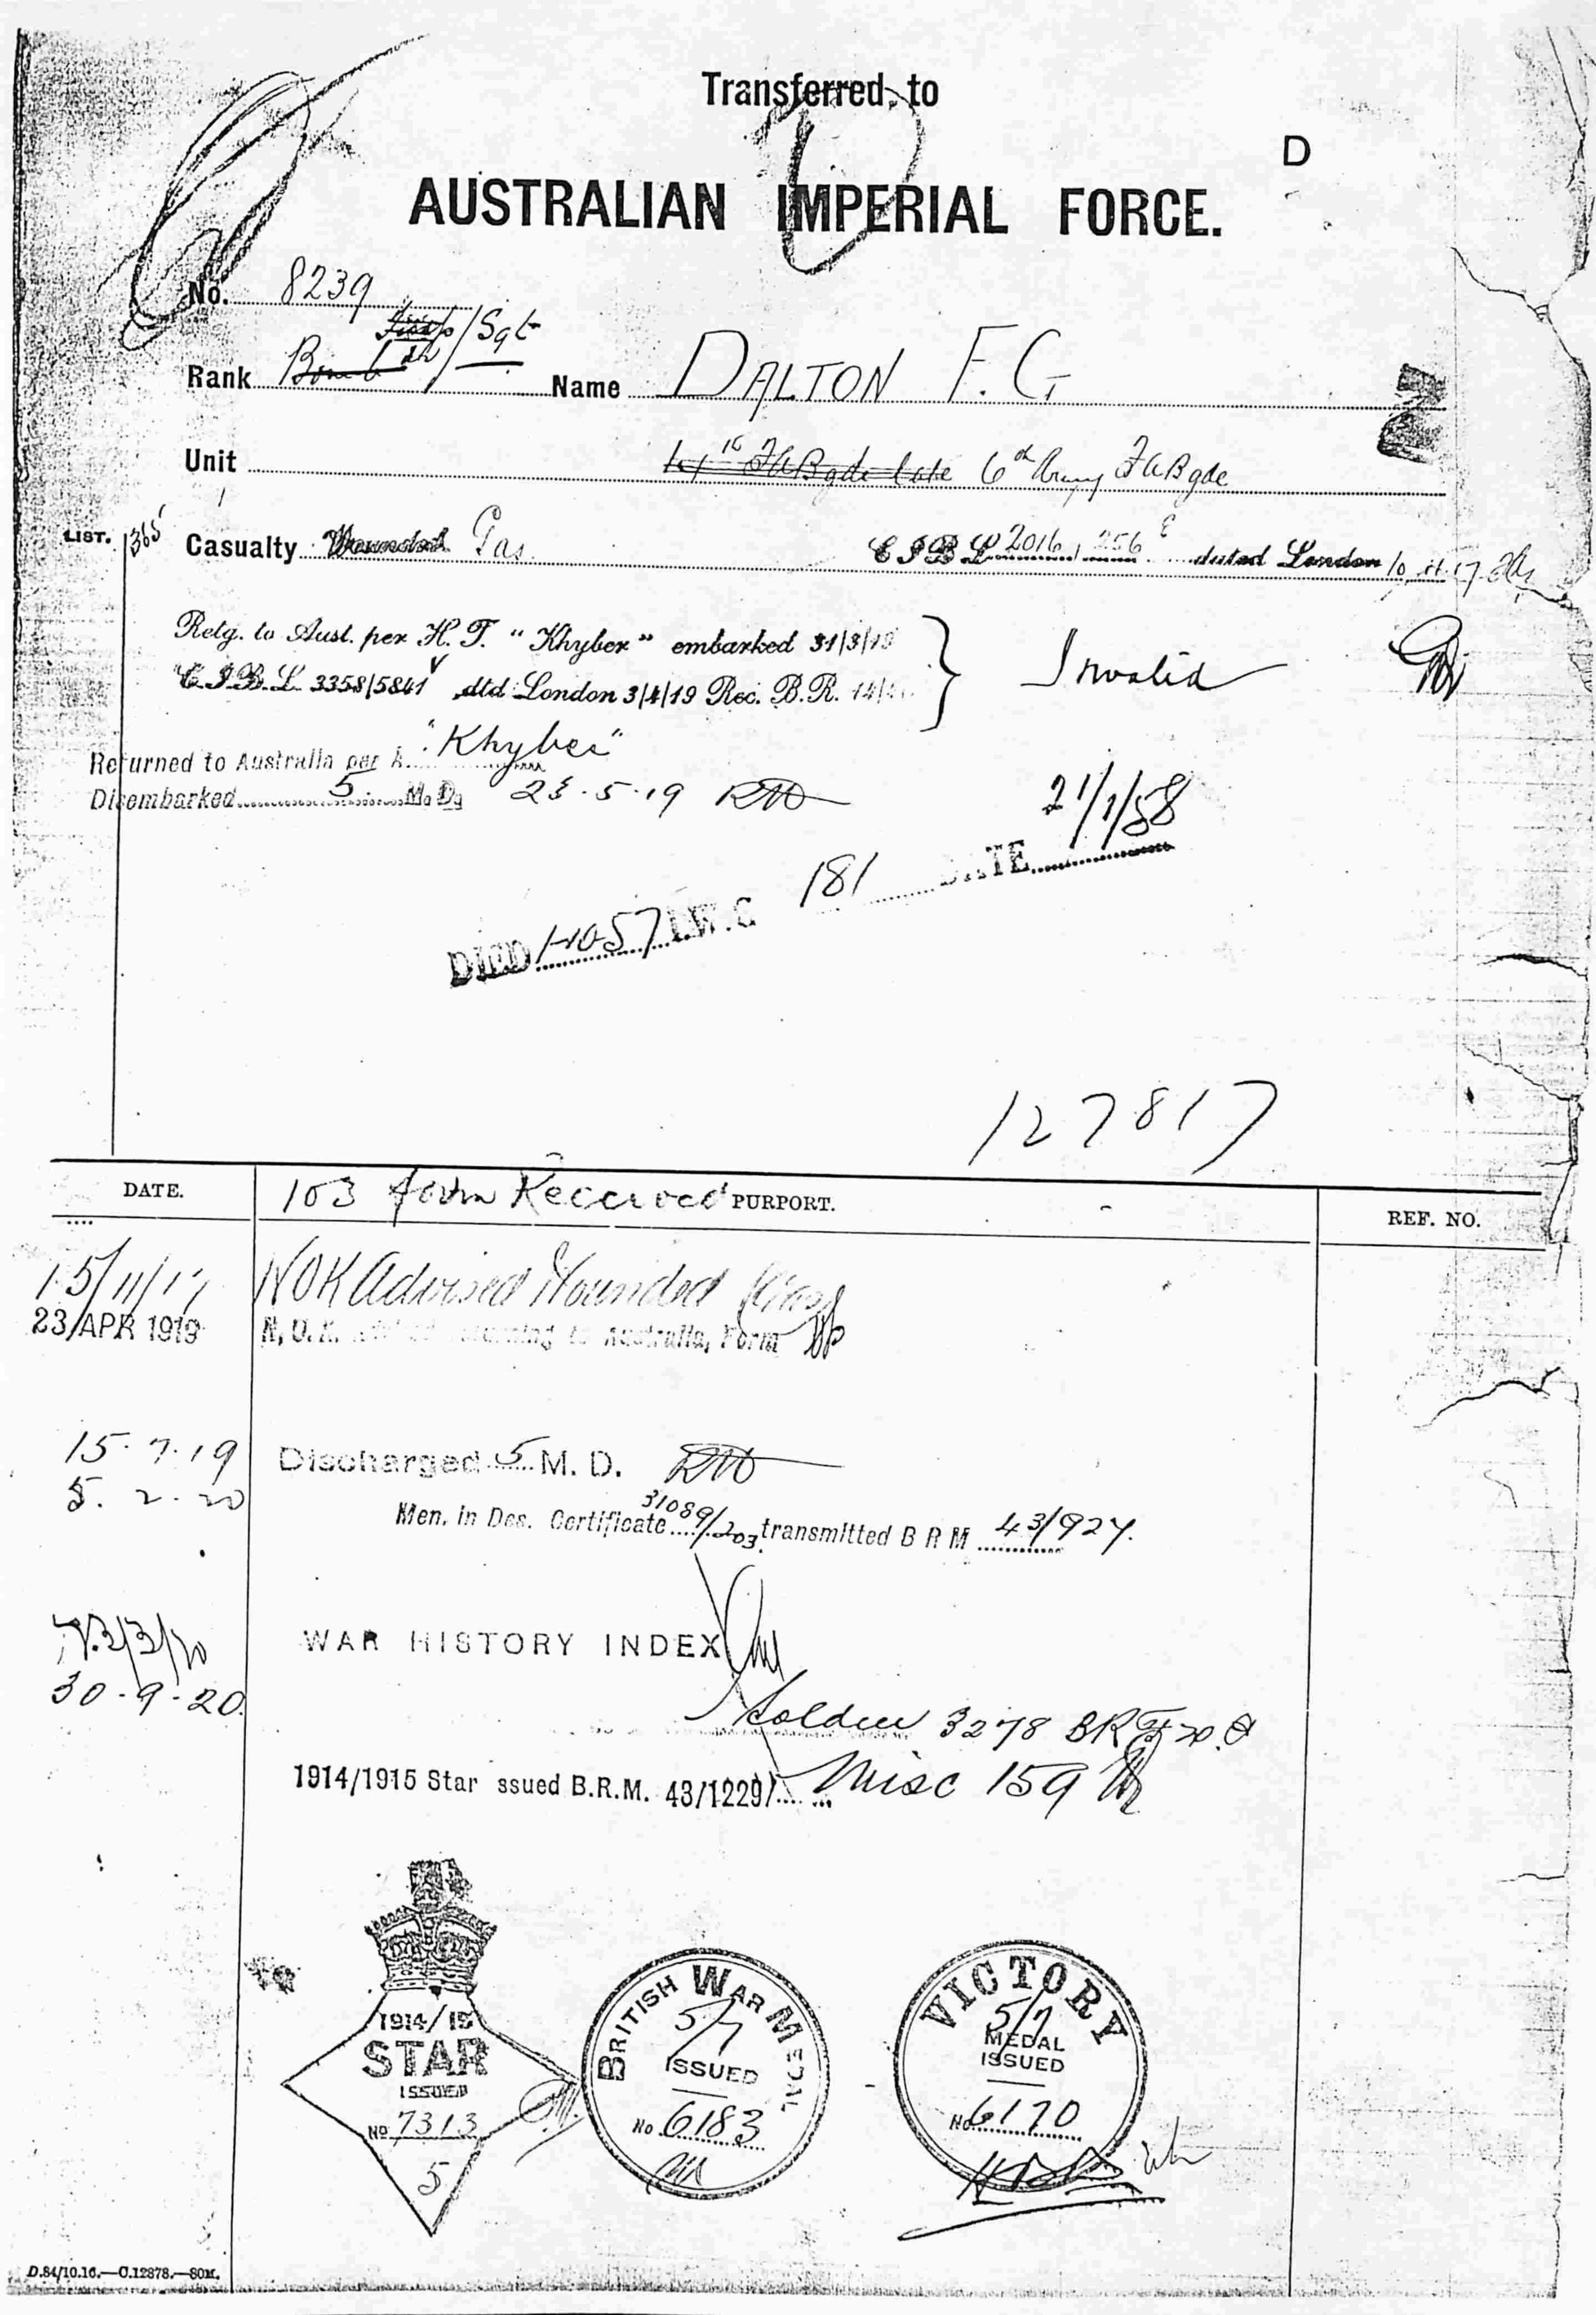 Transferred to
D
AUSTRALIAN IMPERIAL FORCE.
No. 8239
Rank Bomb / Sgt Name DALTON F. G
Unit FABgde late 6th Army FABgde
LIST. 365 Casualty Wounded Gas C I B L W 2016 256 E dated London 10.11.17
Retg. to Aust. per H. T. "Khyber" embarked 31/3/19 Invalid
C.I.B.L. 3358/5841 dtd London 3/4/19 Rec. B.R.
Returned to Australia per "Khyber"
Disembarked 5 M.D. 23.5.19
181 DATE 21/1/58
DIED 1-10-57 I.W.G
127817
DATE. 103 form Received PURPORT. REF. NO.
15/11/17 NOK Advised Wounded Gas
23 APR 1919 N.O.K. returning to Australia, Form
15.7.19 Discharged 5 M. D.
5.2.20 Men. in Des. Certificate 31089/203 transmitted B R M 43/927.
WAR HISTORY INDEX
30.9.20. Soldier 3278 BR
1914/1915 Star ssued B.R.M. 43/1229/ Misc 159
1914/15 STAR ISSUED No 7313 5
BRITISH WAR MEDAL 5/7 ISSUED No 6183
VICTORY 5/7 MEDAL ISSUED No 6170
D.84/10.16.—C.12878.—50M.